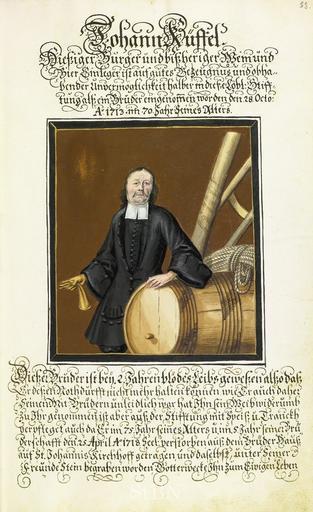 Johann Küffel.
Hiesiger Burger und bißheriger Wein und
Bier Einleger ist auf gutes Bezeugnus und obha-
bender Unvermöglichkeit halber in diese Löbl: Stiff-
tung alß ein Bruder eingenom̄en worden den 28. Octo:
A° 1713. im 70. Jahr Seines Alters.
Dieser Bruder ist bey 2. Jahren blödes Leibs gewesen alß daß
Er Nothdurfft nicht mehr halten können wie Er auch daher
Seinen Mit Brüdern unleidlich war hat Ihn Sein Weib widerumb
zu Ihr genom̄en ist aber auß der Stifftung mit Speiß u. Tranckh
verpfleget auch da Er im 75. Jahr seines Alters u. im 5. Jahr seiner Bru
derschafft den 25. April A° 1718. Seel. verstorben auß dem Bruder Hauß
auf St. Johannis Kirchhoff getragen und daselbst unter Seiner
Freunde Stein begraben worden Gott erwecke Ihn zum Ewigen Leben